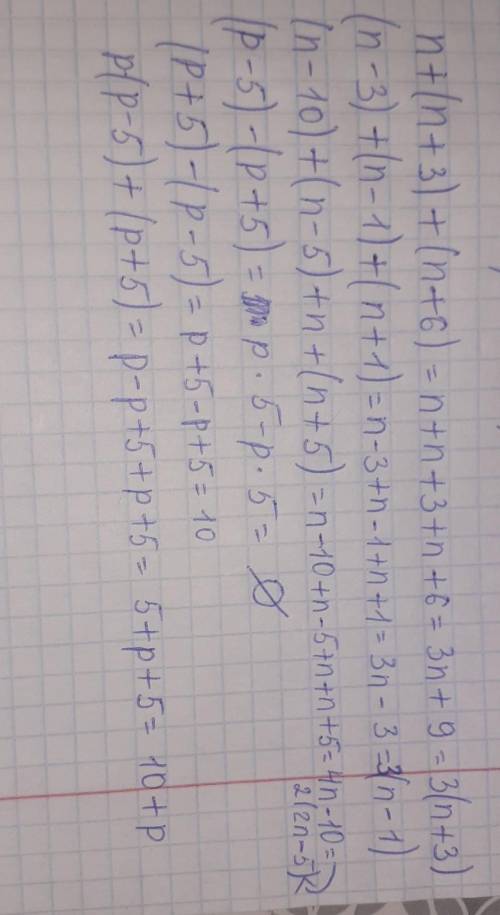 n+(n+3)+(n+6)=n+n+3+n+6=3n+9=3(n+3)
(n-3)+(n-1)+(n+1)=n-3+n-1+n+1=3n-3=3(n-1)
(n-10)+(n-5)+n+(n+5)=n-10+n-5+n+n+5=4n-10=
2(2n-5)
(p-5)-(p+5)=p·5-p·5=∅
(p+5)-(p-5)=p+5-p+5=10
p(p-5)+(p+5)=p-p+5+p+5=5+p+5=10+p